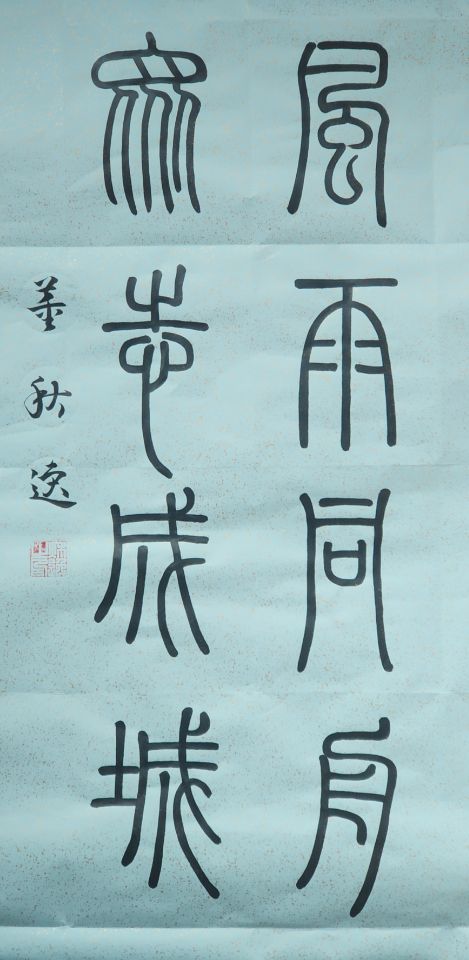 風雨同舟
眾志成城
董秋逸